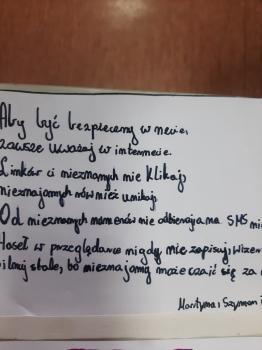 Aby być bezpieczny w necie,
zawsze uważaj w internecie.
Linków ci nieznanych nie klikaj,
nieznajomych również unikaj.
Od nieznanych numerów nie odbieraj a na SMS
Haseł w przeglądarce nigdy nie zapisuj
pilnuj stale, bo nieznajomy może czaić się za
Martyna i Szymon